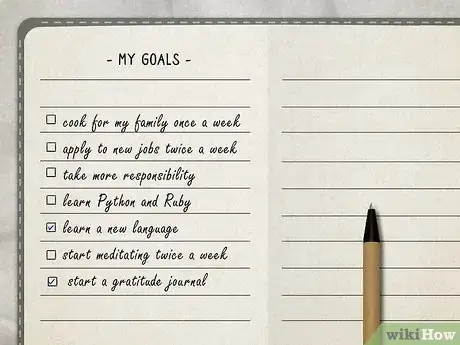 - MY GOALS -
cook for my family once a week
apply to new jobs twice a week
take more responsibility
learn Python and Ruby
learn a new language
start meditating twice a week
start a gratitude journal
wikiHow